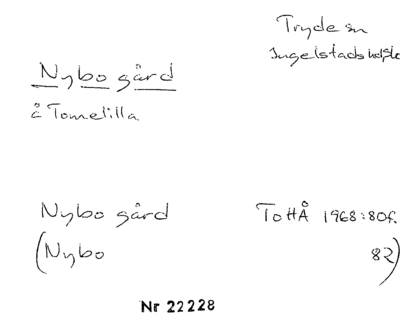 Tryde sn
Ingelstads hd, Sk
Nybo gård
å Tomelilla
Nybo gård ToHÅ 1968:80f.
(Nybo 82)
Nr 22228